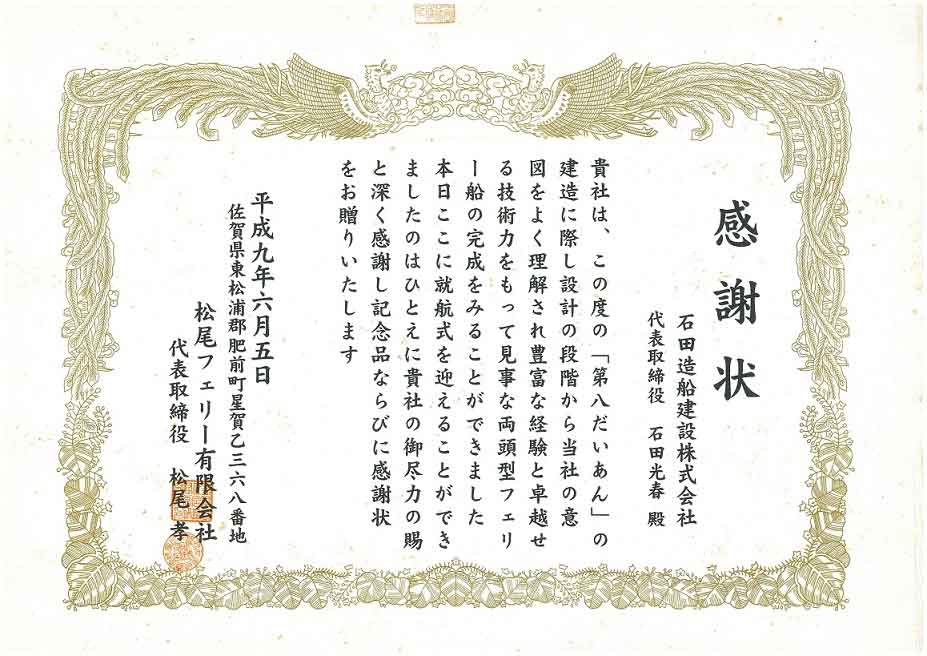 感謝状
石田造船建設株式会社
代表取締役 石田光春 殿
貴社は、この度の「第八だいあん」の
建造に際し設計の段階から当社の意
図をよく理解され豊富な経験と卓越せ
る技術力をもって見事な両頭型フェリ
ー船の完成をみることができました
本日ここに就航式を迎えることができ
ましたのはひとえに貴社の御尽力の賜
と深く感謝し記念品ならびに感謝状
をお贈りいたします
平成九年六月五日
佐賀県東松浦郡肥前町星賀乙三六八番地
松尾フェリー有限会社
代表取締役 松尾孝